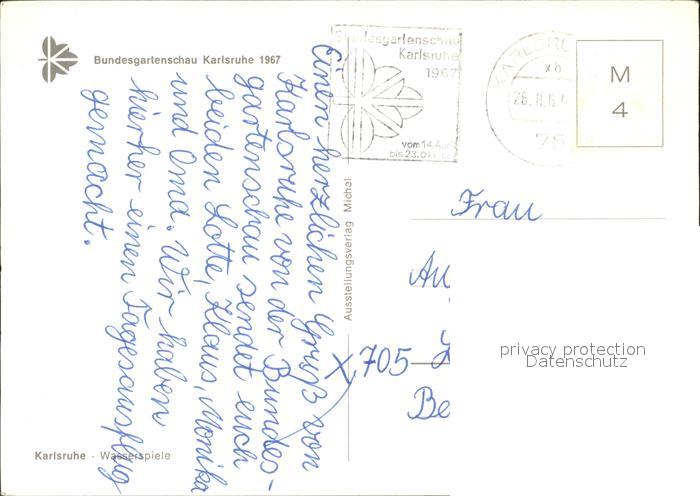 Bundesgartenschau Karlsruhe 1967
Einen herzlichen Gruß von
Karlsruhe von der Bundes-
gartenschau sendet euch
beiden Lotte, Klaus, Monika
und Oma. Wir haben
hierher einen Tagesausflug
gemacht.
Karlsruhe · Wasserspiele
Ausstellungsverlag Michel
Bundesgartenschau
Karlsruhe
1967
vom 14. April
bis 23. Okt.
KARLSRU
xb
26.8.67
75
M
4
Frau
Au
X 705
Be
privacy protection
Datenschutz